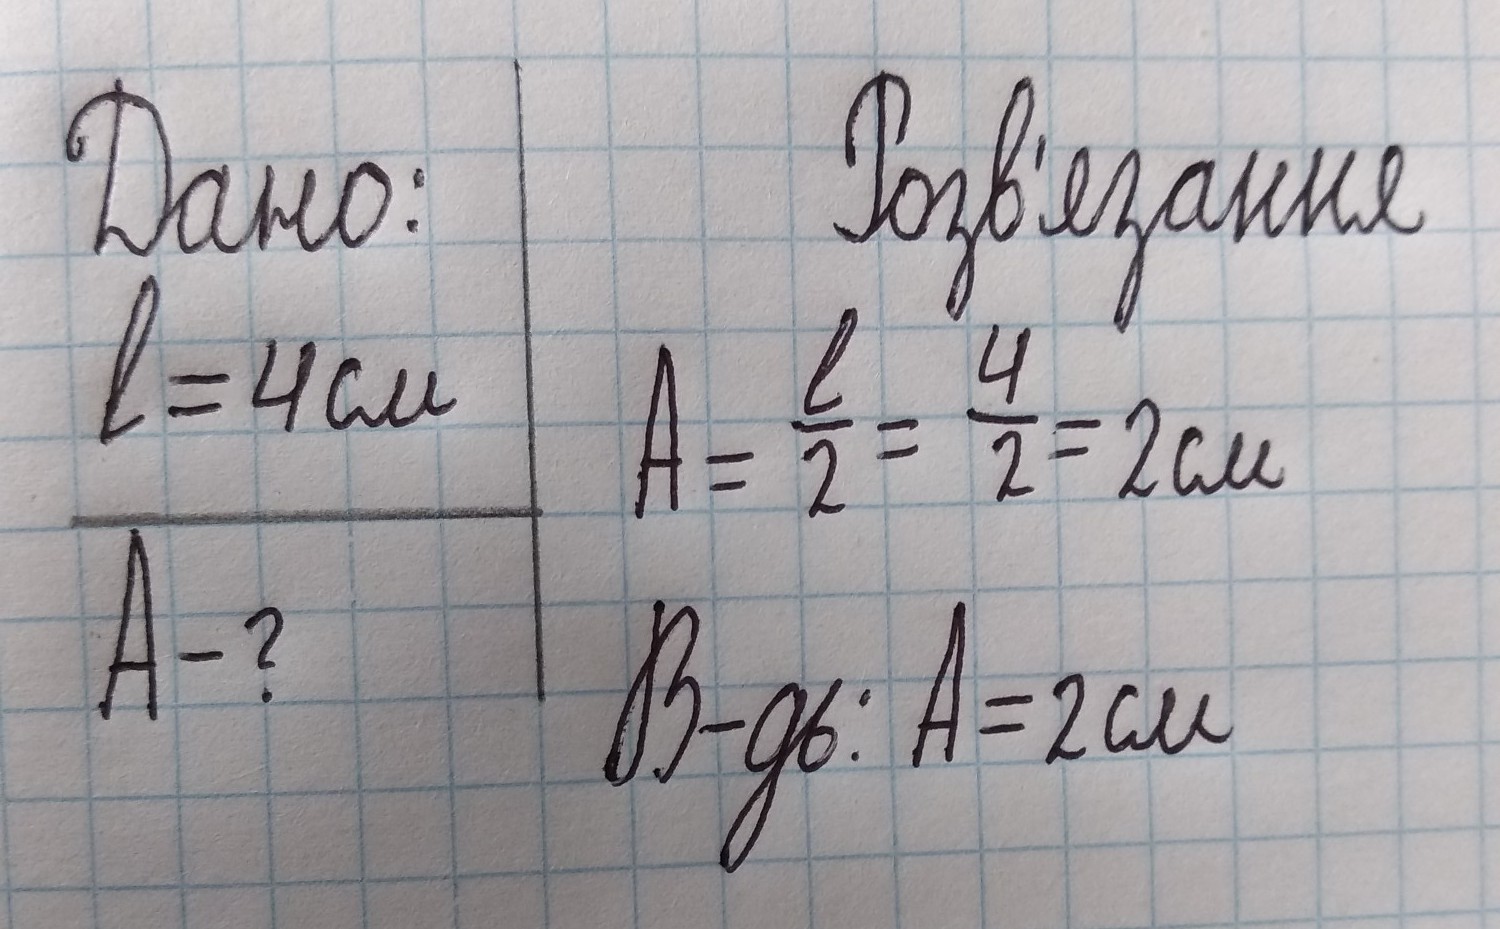 Дано:
l = 4 см
A - ?
Розв'язання
A = l/2 = 4/2 = 2 см
В-дь: A = 2 см